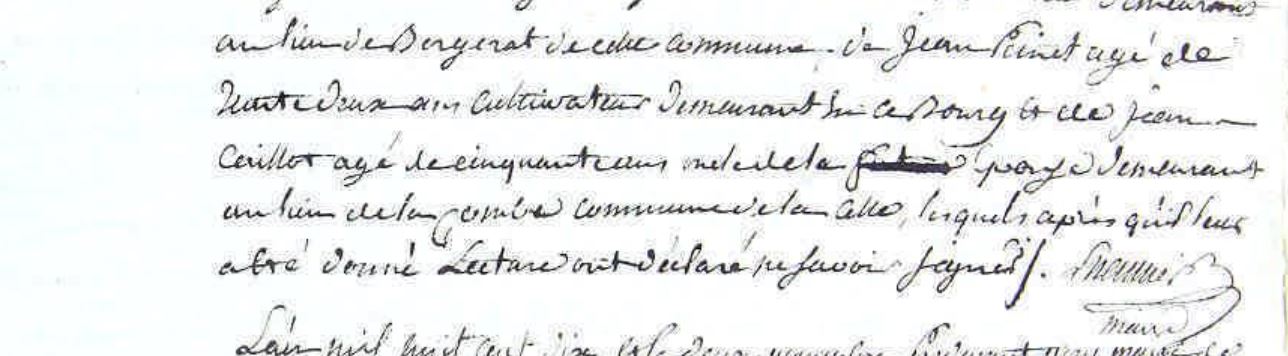 demeurant
au lieu de Bergerat de cette commune. de Jean Peinet agé de
trente deux ans Cultivateur demeurant en ce Bourg et de Jean
Cerillot agé de cinquante ans de la paye demeurant
au lieu de la Combe commune de la Celle, lesquels après qu'il leur
a été donné Lecture ont déclaré ne savoir signer /.
maire
L'an mil huit cent dix et le deux novembre Pardevant nous maire de